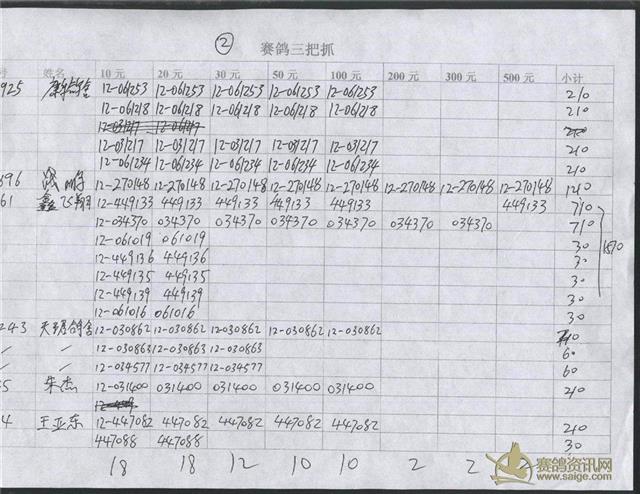 ②
赛鸽三把抓
号 姓名 10元 20元 30元 50元 100元 200元 300元 500元 小计
925 12-061253 12-061253 12-061253 12-061253 12-061253 210
12-061218 12-061218 12-061218 12-061218 12-061218 210
12-031217 12-031217 12-031217 12-031217 12-031217 210
12-061234 12-061234 12-061234 12-061234 12-061234 210
396 鹏 12-270148 12-270148 12-270148 12-270148 12-270148 12-270148 12-270148 12-270148 1210
61 鑫飞翔 12-449133 449133 449133 449133 449133 449133 710
12-034370 034370 034370 034370 034370 034370 034370 710
12-061019 061019 30
12-449136 449136 30
12-449135 449135 30
12-449139 449139 30
12-061016 061016 30
243 12-030862 12-030862 12-030862 12-030862 12-030862 210
〃 〃 12-030863 12-030863 12-030863 60
〃 〃 12-034577 12-034577 12-034577 60
5 朱杰 12-031400 031400 031400 031400 031400 210
4 王亚东 12-447082 447082 447082 447082 447082 210
447088 447088 30
18 18 12 10 10 2 2 2
赛鸽资讯网
www.saige.com